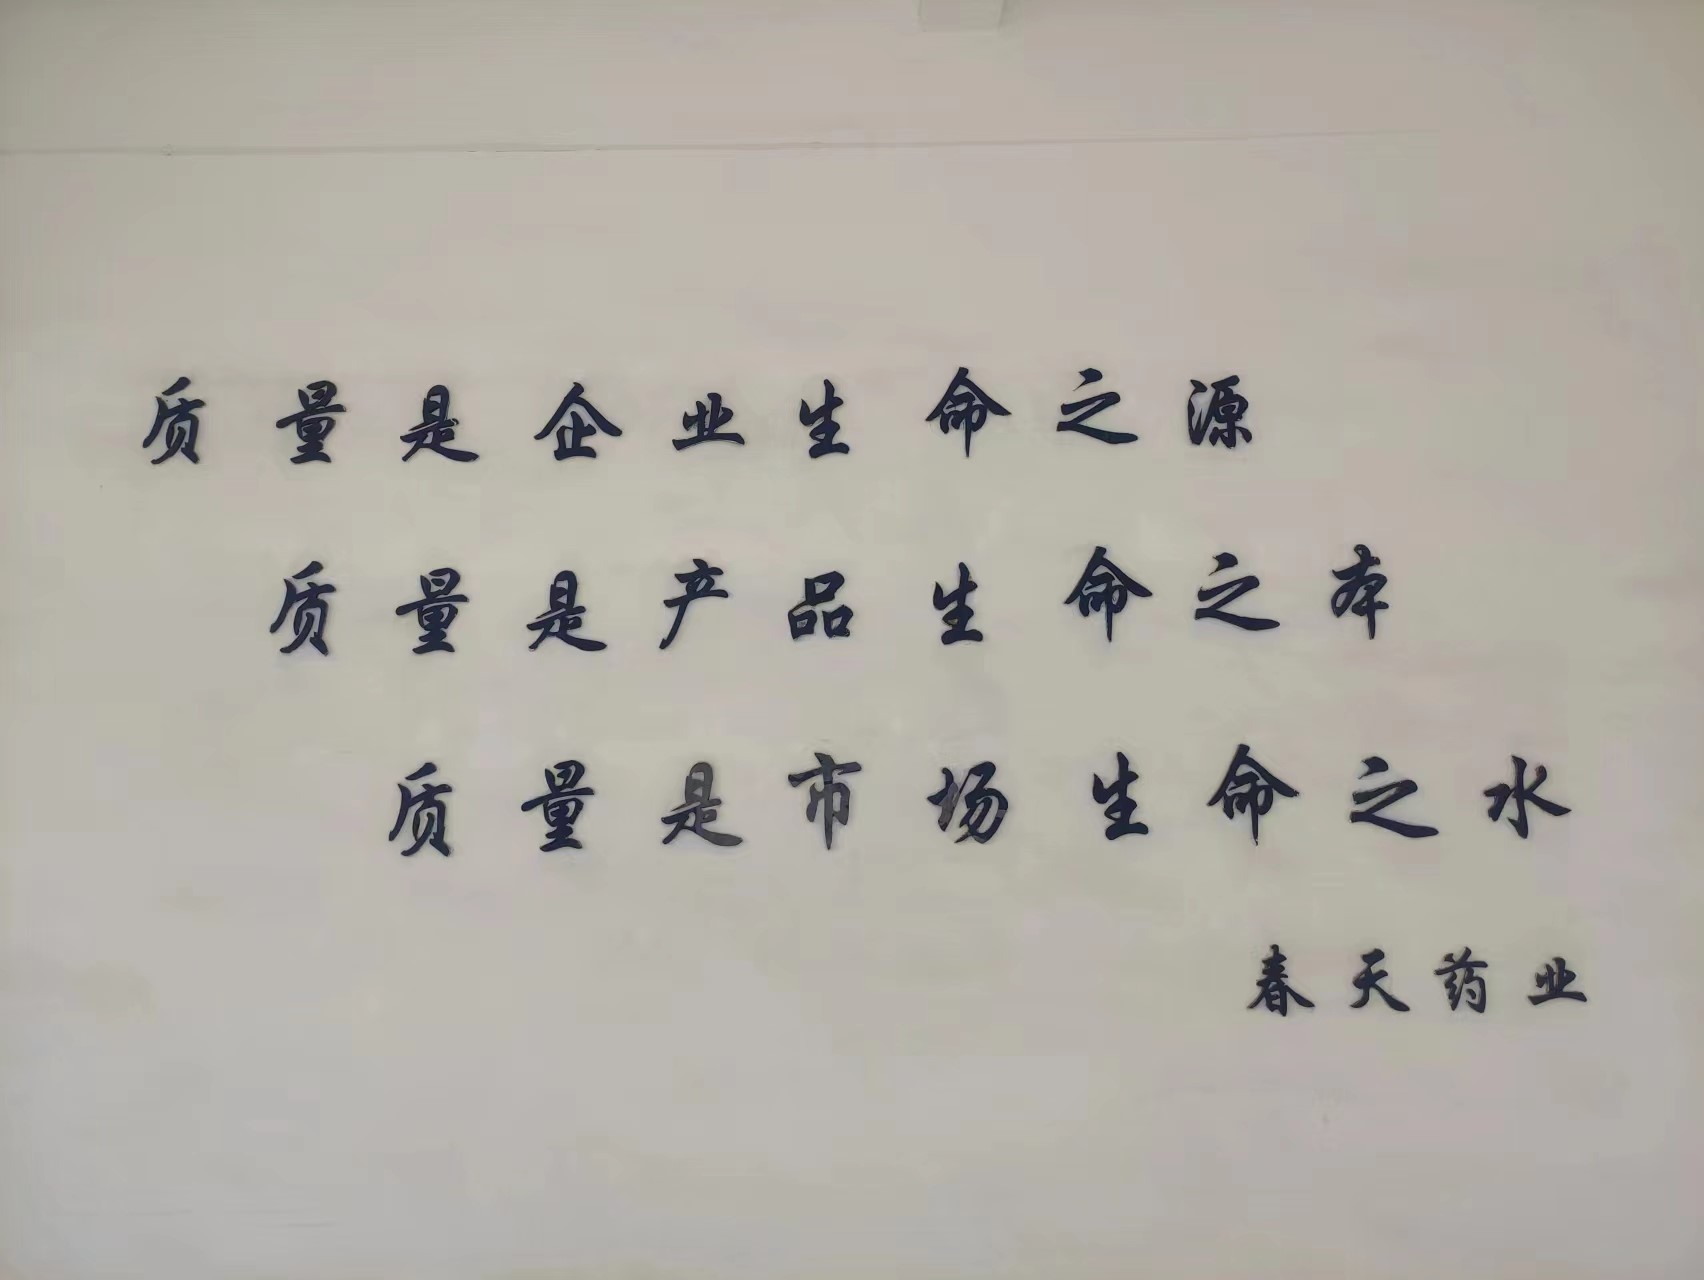 质量是企业生命之源
质量是产品生命之本
质量是市场生命之水
春天药业